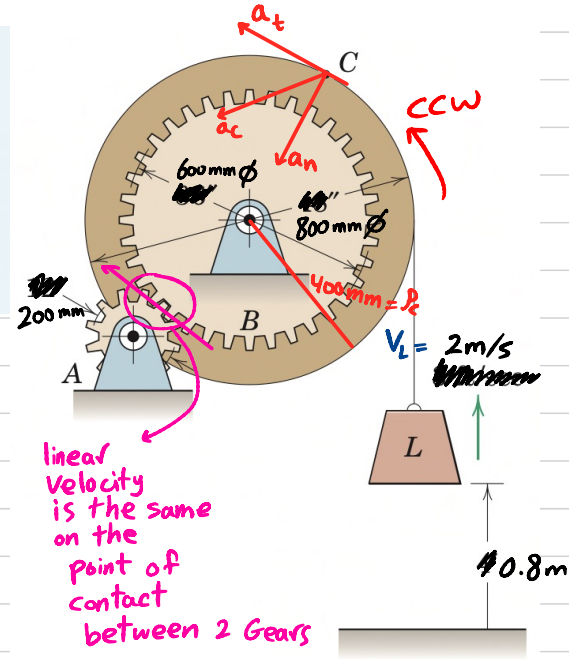 a_t
C
CCW
a_c
a_n
600mm ϕ
800mm ϕ
400mm = ρ_c
200mm
B
A
V_L = 2m/s
L
0.8m
linear
velocity
is the same
on the
point of
contact
between 2 Gears